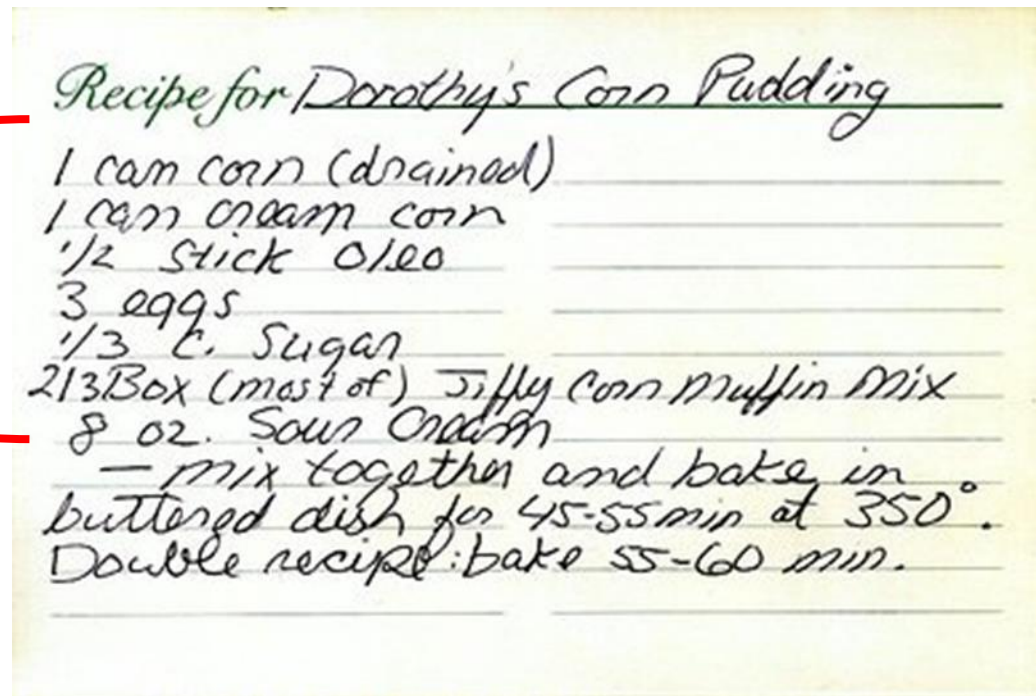 Recipe for Dorothy's Corn Pudding
1 can corn (drained)
1 can cream corn
1/2 Stick Oleo
3 eggs
1/3 C. Sugar
2/3 Box (most of) Jiffy Corn Muffin Mix
8 oz. Sour Cream
— mix together and bake in
buttered dish for 45-55 min at 350°.
Double recipe: bake 55-60 min.